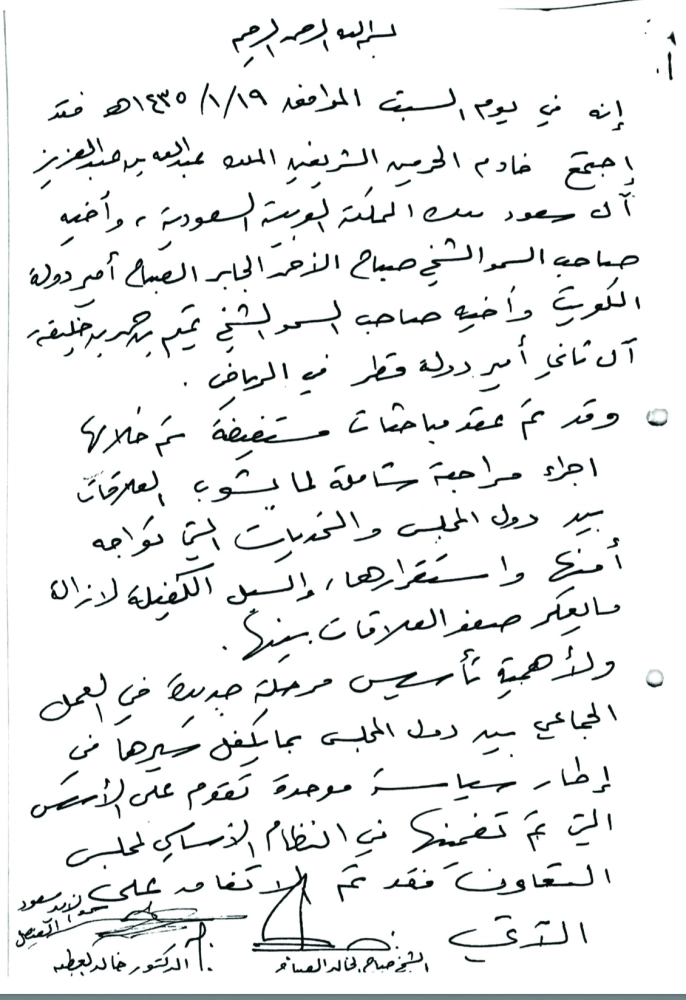 بسم الله الرحمن الرحيم
إنه في يوم السبت الموافق ١٤٣٥/١/١٩هـ فقد
إجتمع خادم الحرمين الشريفين الملك عبدالله بن عبدالعزيز
آل سعود ملك المملكة العربية السعودية ، وأخيه
صاحب السمو الشيخ صباح الأحمد الجابر الصباح أمير دولة
الكويت وأخيه صاحب السمو الشيخ تميم بن حمد بن خليفه
آل ثاني أمير دولة قطر في الرياض .
وقد تم عقد مباحثات مستفيضة تم خلالها
اجراء مراجعة شاملة لما يشوب العلاقات
بين دول المجلس والتحديات التي تواجه
أمنها واستقرارها ، والسبل الكفيلة لازالة
مايعكر صفو العلاقات بينها .
ولأهمية تأسيس مرحلة جديدة في العمل
الجماعي بين دول المجلس بما يكفل سيرها في
إطار سياسة موحدة تقوم على الأسس
التي تم تضمينها في النظام الأساسي لمجلس
التعاون فقد تم الاتفاق على
الآتي :
سعود الفيصل
الدكتور خالد العطيه
الشيخ صباح الخالد الصباح